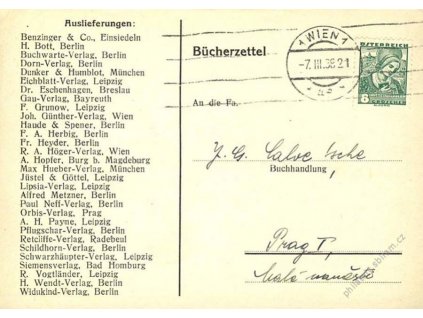 Auslieferungen:
Benzinger & Co., Einsiedeln
H. Bott, Berlin
Buchwarte-Verlag, Berlin
Dorn-Verlag, Berlin
Dunker & Humblot, München
Eichblatt-Verlag, Leipzig
Dr. Eschenhagen, Breslau
Gau-Verlag, Bayreuth
F. Grunow, Leipzig
Joh. Günther-Verlag, Wien
Haude & Spener, Berlin
F. A. Herbig, Berlin
Fr. Heyder, Berlin
R. A. Höger-Verlag, Wien
A. Hopfer, Burg b. Magdeburg
Max Hueber-Verlag, München
Jüstel & Göttel, Leipzig
Lipsia-Verlag, Leipzig
Alfred Metzner, Berlin
Paul Neff-Verlag, Berlin
Orbis-Verlag, Prag
A. H. Payne, Leipzig
Pflugschar-Verlag, Berlin
Retcliffe-Verlag, Radebeul
Schildhorn-Verlag, Berlin
Schwarzhäupter-Verlag, Leipzig
Siemensverlag, Bad Homburg
R. Vogtländer, Leipzig
H. Wendt-Verlag, Berlin
Widukind-Verlag, Berlin
Bücherzettel
1 WIEN 1
-7. III. 38 21
ÖSTERREICH
GROSCHEN
An die Fa.
J. G. Calve'sche
Buchhandlung
Prag I,
Malé naměstí